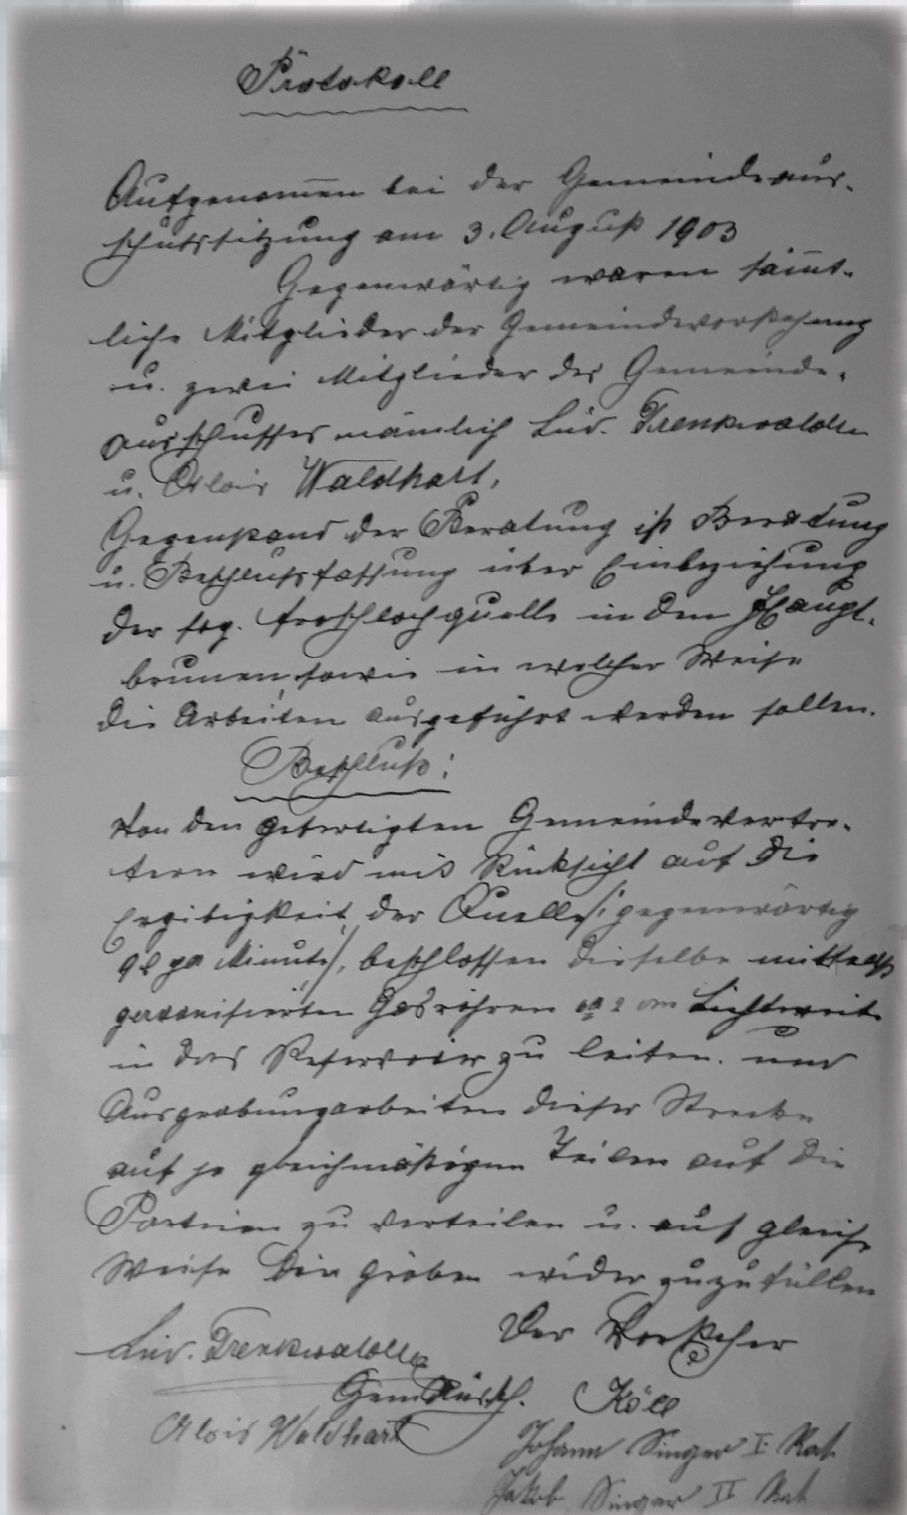 Protokoll
Aufgenomen bei der Gemeindeaus-
schußsitzung am 3. August 1903
Gegenwärtig waren sämt-
liche Mitglieder der Gemeindevorstehung
u. zwei Mitglieder des Gemeinde-
ausschusses nämlich Lud. Trenkwalder
u. Alois Waldhart,
Gegenstand der Beratung ist Beratung
u. Beschlußfassung über Einbeziehung
der sog. Froschlochquelle in den Haupt-
brunen, sowie in welcher Weise
die Arbeiten ausgeführt werden sollen.
Beschluß:
Von den gefertigten Gemeindevertre-
tern wird mit Rücksicht auf die
Ergibigkeit der Quelle /: gegenwärtig
9 l pr Minute /, beschlossen dieselbe mittelst
galvanisierten Gasröhren 2 cm Lichtweite
in das Reservoir zu leiten. und
Ausgrabungarbeiten dieser Strecke
auf je gleichmäßigen Teilen auf die
Parteien zu verteilen u. auf gleiche
Weise den Graben wider zuzufüllen
Der Vorsteher
Lud. Trenkwalder
Köll
Alois Waldhart
Johann Singer I. Rat
Jakob Singer II Rat